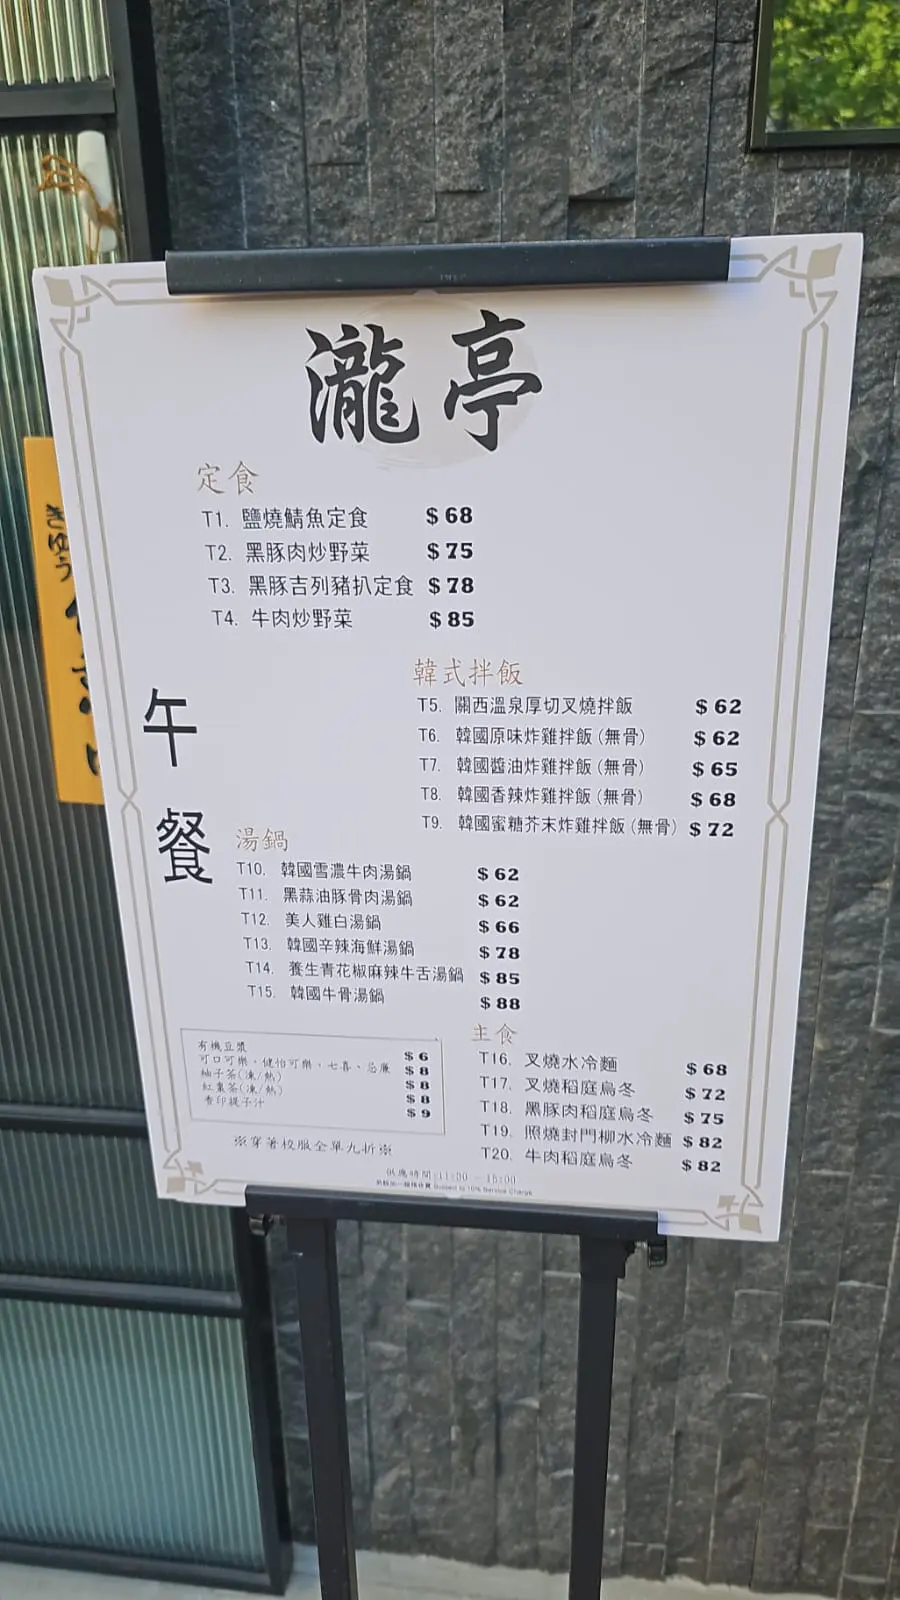 瀧亭
定食
T1. 鹽燒鯖魚定食 $68
T2. 黑豚肉炒野菜 $75
T3. 黑豚吉列豬扒定食 $78
T4. 牛肉炒野菜 $85
韓式拌飯
T5. 關西溫泉厚切叉燒拌飯 $62
T6. 韓國原味炸雞拌飯(無骨) $62
T7. 韓國醬油炸雞拌飯(無骨) $65
T8. 韓國香辣炸雞拌飯(無骨) $68
T9. 韓國蜜糖芥末炸雞拌飯(無骨) $72
午餐
湯鍋
T10. 韓國雪濃牛肉湯鍋 $62
T11. 黑蒜油豚骨肉湯鍋 $62
T12. 美人雞白湯鍋 $66
T13. 韓國辛辣海鮮湯鍋 $78
T14. 養生青花椒麻辣牛舌湯鍋 $85
T15. 韓國牛骨湯鍋 $88
主食
T16. 叉燒水冷麵 $68
T17. 叉燒稻庭烏冬 $72
T18. 黑豚肉稻庭烏冬 $75
T19. 照燒封門柳水冷麵 $82
T20. 牛肉稻庭烏冬 $82
有機豆漿 $6
可口可樂、健怡可樂、七喜、忌廉 $8
柚子茶(凍/熱) $8
紅棗茶(凍/熱) $8
香印提子汁 $9
※穿著校服全單九折※
供應時間:11:00 - 15:00
另設加一服務收費 Subject to 10% Service Charge
きゅう